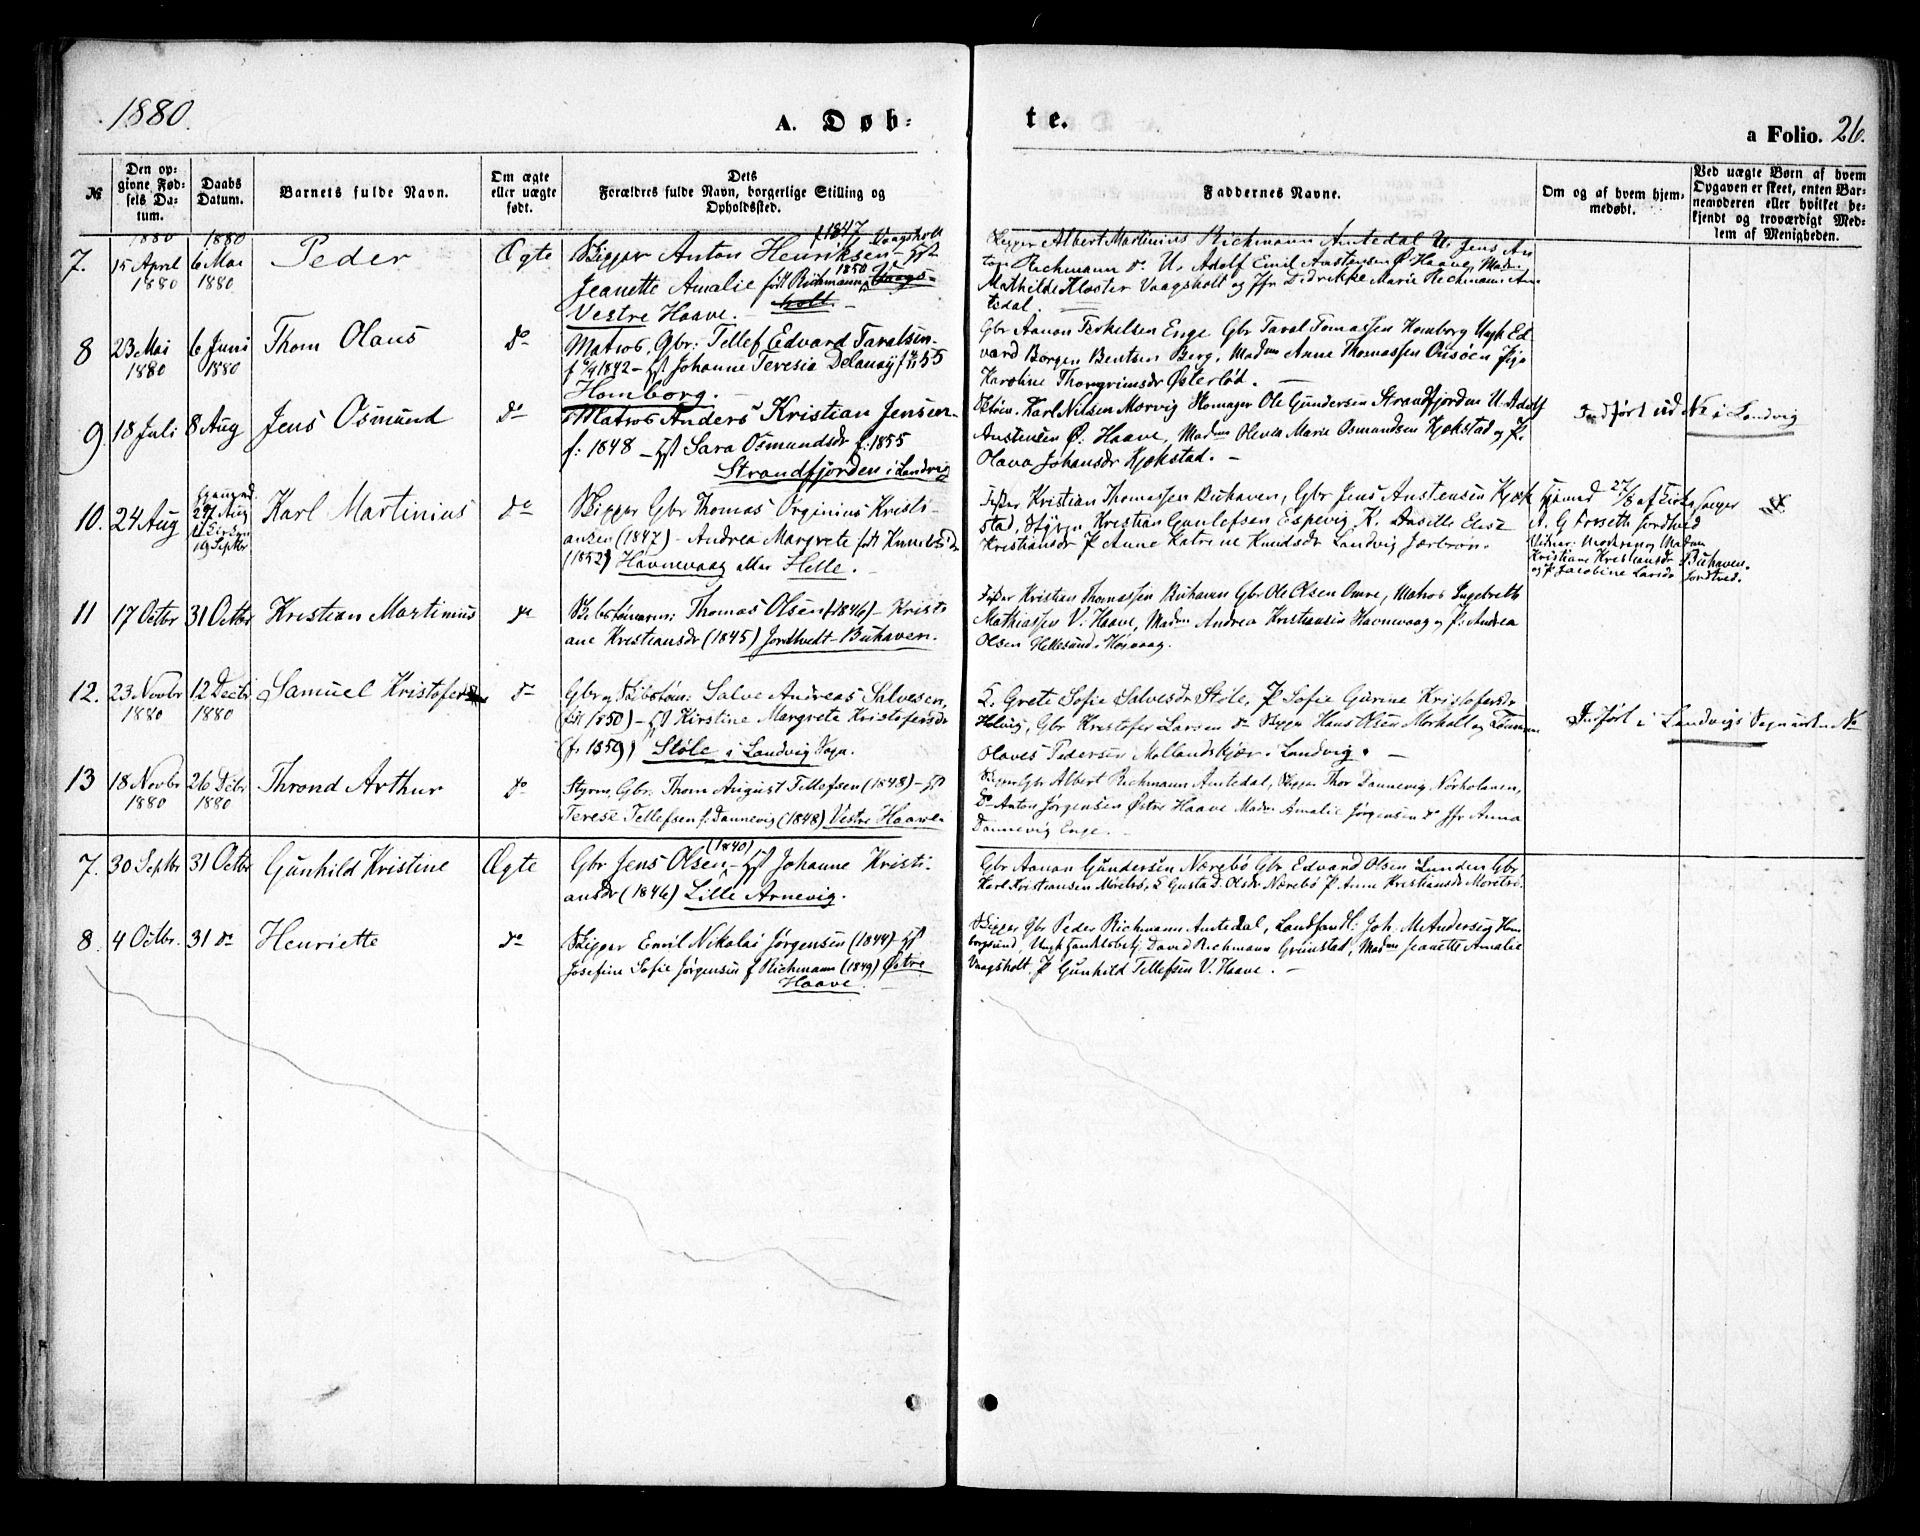 1880.
A. Døb-
te.
a Folio. 26.
№
Den op-
givne Fød-
sels Da-
tum.
Daabs
Datum.
Barnets fulde Navn.
Om ægte
eller uægte
født.
Dets
Forældres fulde Navn, borgerlige Stilling og
Opholdssted.
Faddernes Navne.
Om og af hvem hjem-
medøbt.
Ved uægte Børn af hvem
Opgaven er skeet, enten Bar-
nemoderen eller hvilket be-
kjendt og troværdigt Med-
lem af Menigheden.
7.
1880
15 April
1880
1880
6 Mai
1880
Peder
Ægte
f. 1847
Skipper Anton Henriksen Vaagsholt
Jeanette Amalie født Richmann 1850
Vestre Haave.
Skipper Albert Martinius Richmann Amtedal U. Jens An
ton Richmann do U. Adolf Emil Austensen Ø. Haave, Madm
Mathilde Kloster Vaagsholt og Jfr Didrikke Marie Richmann Am
tedal.
8
23 Mai
1880
6 Juni
1880
Thom Olaus
do
Matros, Gbr: Tellef Edvard Taralsen
1842 - Johanne Teresia Delanaÿ 55
Homborg.
Gbr Aanon Terkelsen Enge Gbr Taral Tomassen Homborg Ungk Ed
vard Børgen Bentsen Berg, Madm Anne Thomassen Pige
Karoline Thorgrimsdr Østerlød.
9
18 Juli
8 Aug
Jens Osmund
do
Matros Anders Kristian Jensen
f: 1848 - Sara Osmundsdr f. 1855
Strandfjorden i Landvig
Karl Nilsen Morvig Ole Gundersen Strandfjorden U. Adolf
Austensen Ø. Haave, Madm Olevia Marie Osmundsen Kjøkstad og P.
Olava Johansdr Kjøkstad.
Indført ud No i Landvig
10.
24 Aug
27 Aug
i Kirken
19 Septbr
Karl Martinius
do
Skipper Gbr Thomas Orginius Kristi-
ansen (1847) - Andrea Margrete født Knudsdr
(1852) Havnevaag eller Helle.
Fisker Kristian Thomassen Buhaven, Gbr Jens Austensen Kjøk
stad, Kristian Gunlefsen Espevig K.
Kristiansdr P Anne Katrine Knudsdr Landvig
Hjemd 27/8 af Kirkesanger
A. G Forseth Jordtved
Vidner: Moderen og Madm
Kristiane Kristiansdr Buhaven
og P Jacobine Larsdr Jordtved.
11
17 Octbr
31 Octbr
Kristian Martinius
do
Skibstømrm: Thomas Olsen (1846) - Kristi
ane Kristiansdr (1845) Jordtvedt-Buhaven.
Fisker Kristian Thomassen Buhaven Gbr Ole Olsen Omre, Matros Ingebreth
Mathiassen V. Haave, Madm Andrea Kristiansen Havnevaag og P. Andrea
Olsen Hellesund i Høivaag.
12.
23 Novbr
1880
12 Decbr
1880
Samuel Kristofer
do
Gbr og Skibstøm: Salve Andreas Salvesen,
(født 1850) - Kirstine Margrete Kristofersdr
(f. 1850) Støle i Landvig Sogn.
Grete Sofie Salvesdr Støle, P Sofie Gurine Kristofersdr
Helvig, Gbr Kristofer Larsen do Skipper Hans Olsen Morholt og Tømmerm
Olaves Pedersen Mollandskjær i Landvig.
Indført i Landvigs Sogn under No
13
18 Novbr
1880
26 Debr
1880
Thrond Arthur
do
Styrm, Gbr. Thom August Tellefsen (1848)
Terese Tellefsen f. Dannevig (1848) Vestre Haave
Skipper Gbr Albert Richmann Amtedal, Skipper Thor Dannevig Norholmen,
do Anton Jørgensen Østre Haave Madm Amalie Jørgensen do Jfr Anna
Dannevig Enge.
7.
30 Septbr
31 Octbr
Gunhild Kristine
Ægte
Gbr Jens Olsen (1840) Johanne Kristi-
ansdr (1846) Lille Arnevig.
Gbr Aanon Gundersen Nærebø Gbr Edvard Olsen Lunden Gbr.
Karl Kristiansen Moretrø, Gustad. Olsdr Nærebø P Anne Kristiansdr Moretrø.
8.
4 Octbr.
31 do
Henriette
do
Skipper Emil Nikolai Jørgensen (1844)
Josefine Sofie Jørgensen f Richmann (1849) Østre
Haave.
Skipper Gbr Peder Richmann Amtedal, Landhandl: Joh. M Andersen Hom
borgsund, Ungk handelsbetj David Richmann Grimstad, Madm Jeanette Amalie
Vaagsholt. P Gunhild Tellefsen V. Haave.